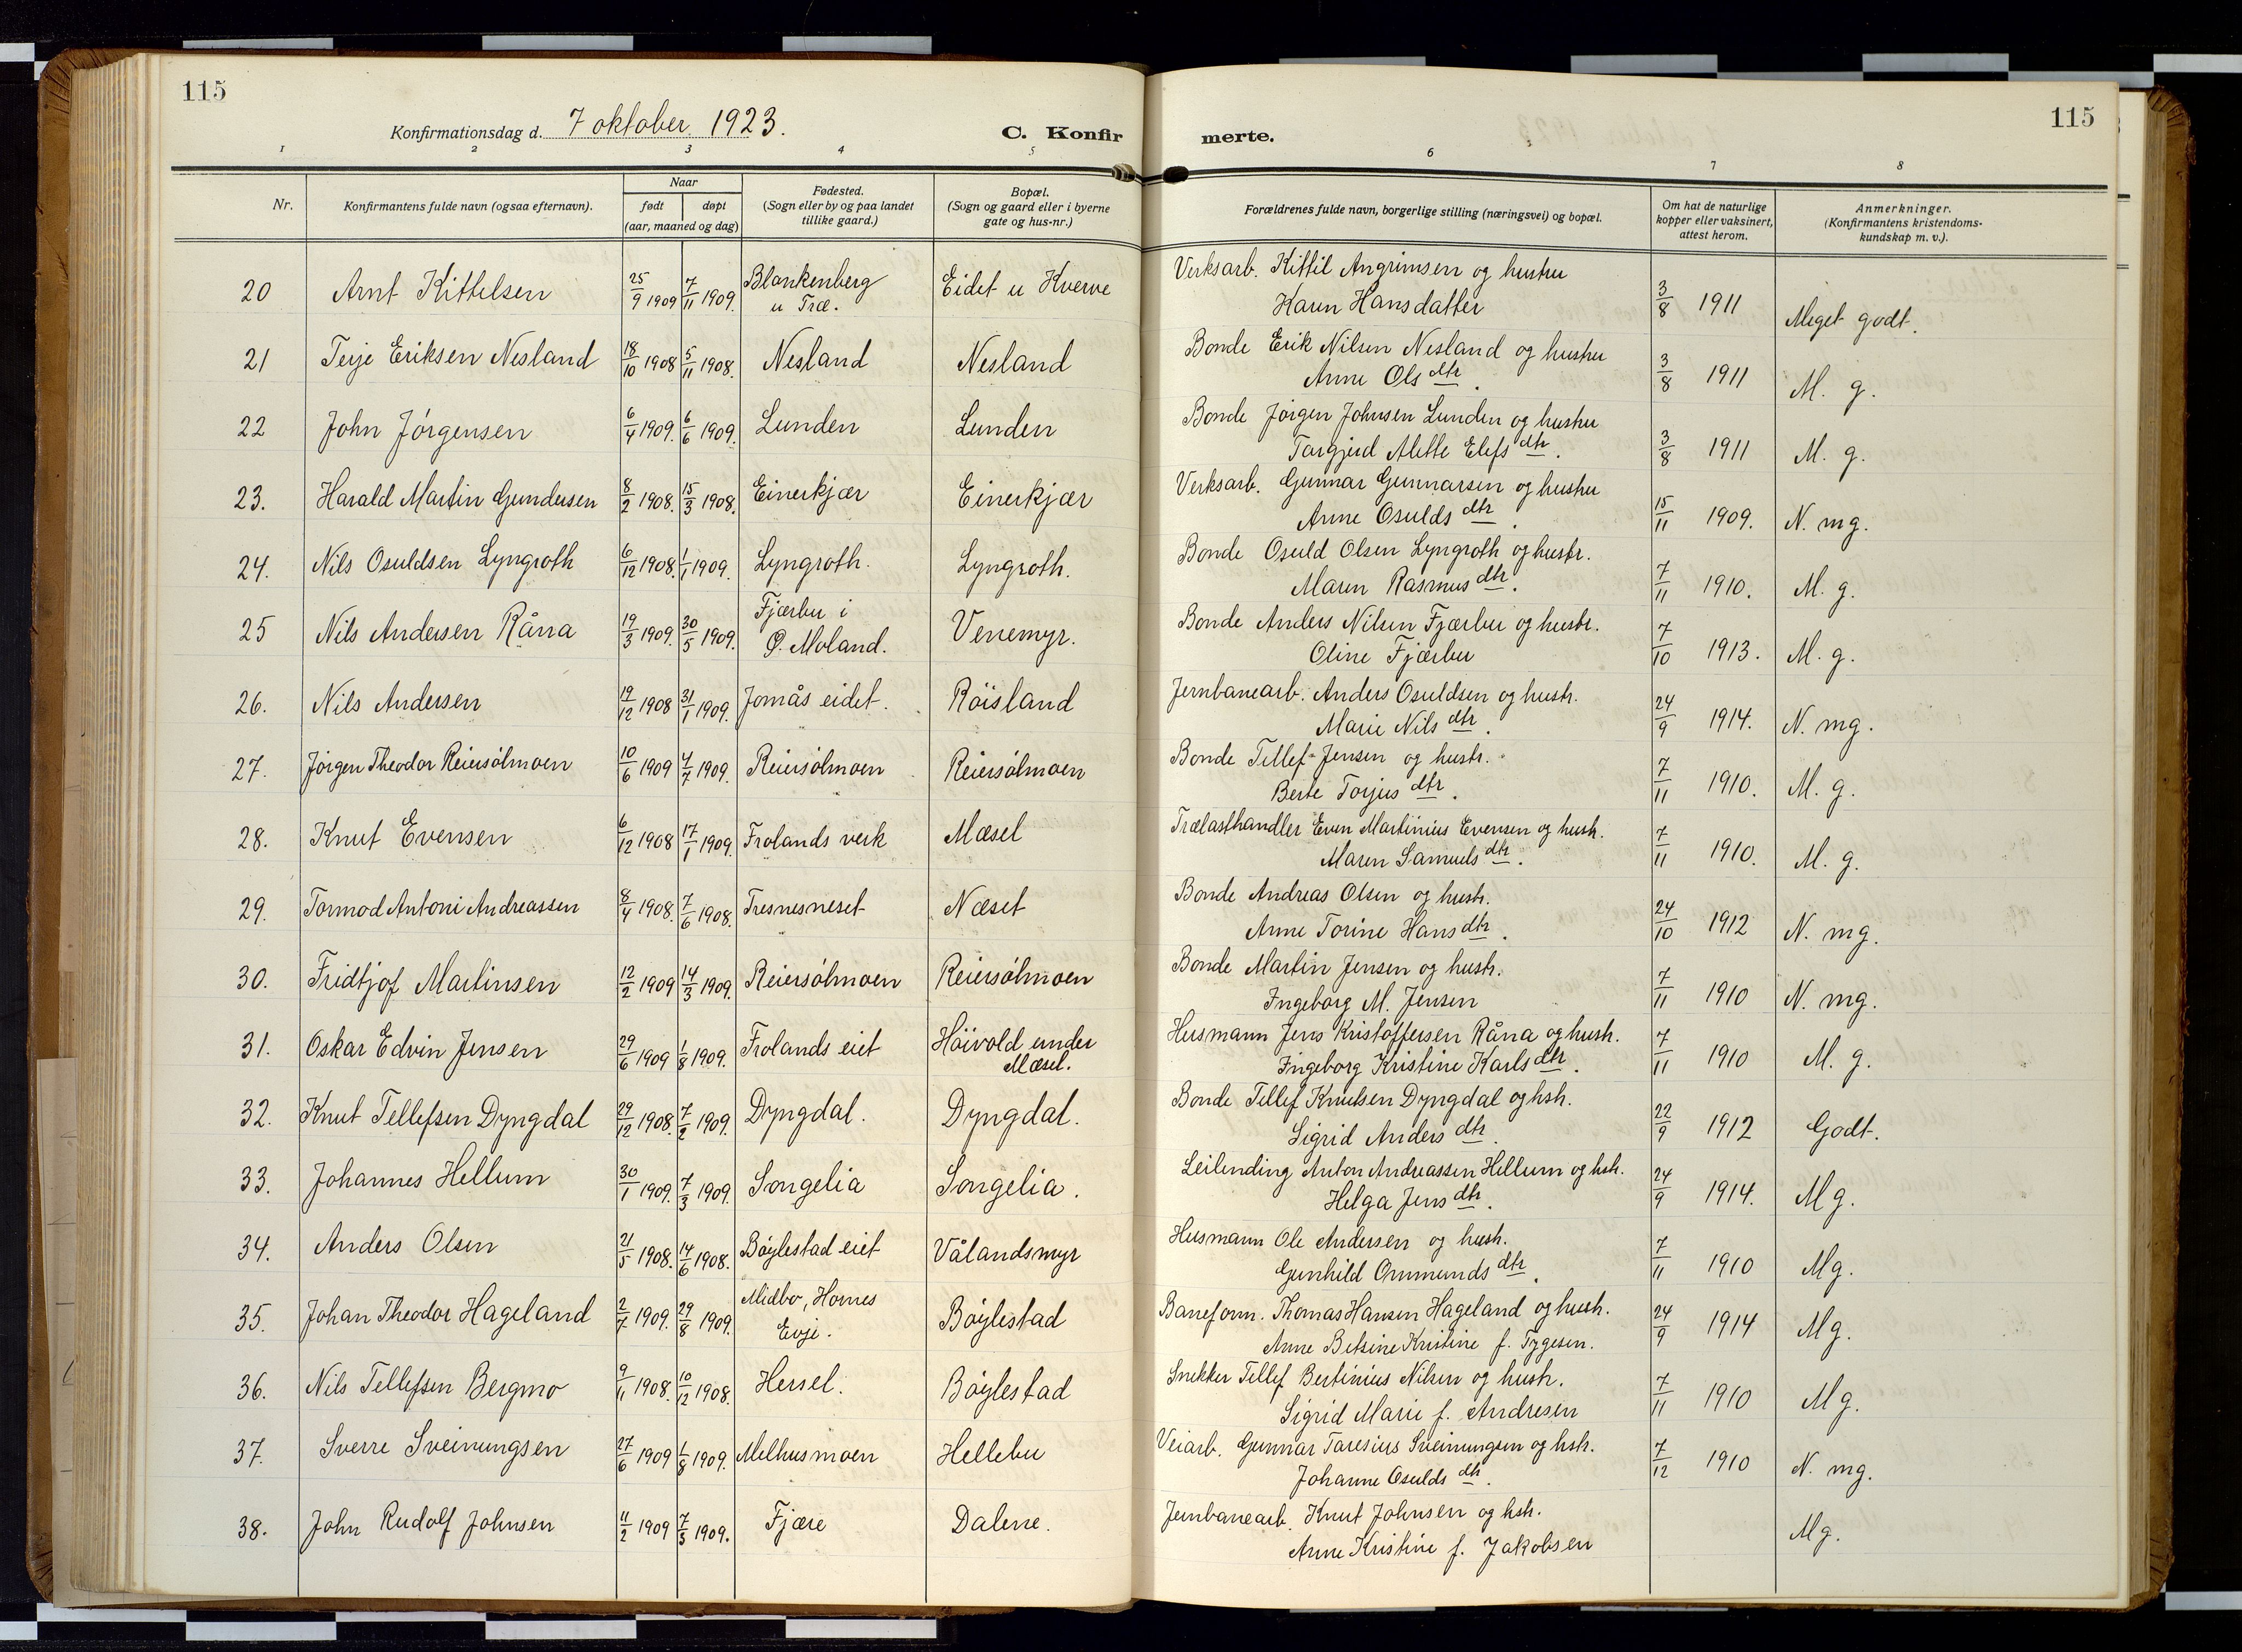 115
115
Konfirmationsdag d. 7 oktober 1923.
C. Konfir
merte.
1 2 3 4 5 6 7 8
Nr.
Konfirmantens fulde navn (ogsaa efternavn).
Naar
født døpt
(aar, maaned og dag)
Fødested.
(Sogn eller by og paa landet
tillike gaard.)
Bopæl.
(Sogn og gaard eller i byerne
gate og hus-nr.)
Forældrenes fulde navn, borgerlige stilling (næringsvei) og bopæl.
Om hat de naturlige
kopper eller vaksinert,
attest herom.
Anmerkninger.
(Konfirmantens kristendoms-
kundskap m. v.).
20 Arnt Kittelsen 25/9 1909 7/11 1909. Blankenberg Eidet u Kverve Verksarb. Kittil Angrimsen og hustru
u Træ. Karen Hansdatter 3/8 1911 Meget godt.
21 Terje Eriksen Nesland 18/10 1908 5/11 1908. Nesland Nesland Bonde Erik Nilsen Nesland og hustru
Anne Olsdtr. 3/8 1911 M. g.
22 John Jørgensen 6/4 1909. 6/6 1909. Lunden Lunden Bonde Jørgen Johnsen Lunden og hustru
Targjerd Mette Elefsdtr. 3/8 1911 M. g.
23. Harald Martin Gundersen 8/2 1908. 15/3 1908. Einerkjær Einerkjær Verksarb. Gunnar Gunnarsen og hustru
Anne Osuldsdtr. 15/11 1909. N. mg.
24. Nils Osuldsen Lyngroth 6/12 1908. 1/1 1909. Lyngroth. Lyngroth. Bonde Osuld Olsen Lyngroth og hustr.
Maren Rasmusdtr. 7/11 1910. M. g.
25 Nils Andersen Råna 19/3 1909. 30/5 1909. Fjærbu i Venemyr. Bonde Anders Nilsen Fjærbu og hustr.
Ø. Moland. Oline Fjærbu 7/10 1913. M. g.
26. Nils Andersen 19/12 1908 31/1 1909. Jomås eidet. Røisland Jernbanearb. Anders Osuldsen og hustr.
Marie Nilsdtr. 24/9 1914. N. mg.
27. Jørgen Theodor Reiersølmoen 10/6 1909 4/7 1909. Reiersølmoen Reiersølmoen Bonde Tellef Jensen og hustr.
Berte Torjusdtr. 7/11 1910. M. g.
28. Knut Evensen 6/12 1908 17/1 1909. Frolands verk Mæsel Trælasthandler Even Martinius Evensen og hustr.
Maren Samuelsdtr. 7/11 1910. M. g.
29. Tormod Antoni Andreassen 8/4 1908. 7/6 1908. Tresnesneset Næset Bonde Andreas Olsen og hustr.
Anne Torine Hansdtr. 24/10 1912 N. mg.
30. Fridtjof Martinsen 12/2 1909 14/3 1909. Reiersølmoen Reiersølmoen Bonde Martin Jensen og hustr.
Ingeborg M. Jensen 7/11 1910 N. mg.
31. Oskar Edvin Jensen 29/6 1909 1/8 1909. Frolands eiet Høivold under Husmann Jens Kristoffersen Råna og hustr.
Mæsel. Ingeborg Kristine Karlsdtr. 7/11 1910 M. g.
32. Knut Tellefsen Dyngdal 29/12 1908. 7/2 1909. Dyngdal. Dyngdal. Bonde Tellef Knutsen Dyngdal og hstr.
Sigrid Andersdtr. 22/9 1912 Godt.
33. Johannes Hellum 30/1 1909. 7/3 1909. Songelia Songelia. Leilending Anton Andreassen Hellum og hstr.
Helga Jensdtr. 24/9 1914. Mg.
34. Anders Olsen 21/5 1908. 14/6 1908. Bøylestad eiet Vålandsmyr Husmann Ole Andersen og hustr.
Gunhild Ommundsdtr. 7/11 1910 Mg.
35. Johan Theodor Hageland 2/7 1909. 29/8 1909. Midbø, Hornes Bøylestad Baneform. Thomas Hansen Hageland og hustr.
Evje. Anne Betsine Kristine f. Tygesen. 24/9 1914 Mg.
36. Nils Tellefsen Bergmo 9/11 1908. 10/12 1908. Hersel. Bøylestad Snekker Tellef Bertinius Nilsen og hustr.
Sigrid Marie f. Andresen 7/11 1910 Mg.
37. Sverre Sveinungsen 27/6 1909 1/8 1909. Melhusmoen Hellebu Veiarb. Gunnar Taresius Sveinungsen og hstr.
Johanne Osuldsdtr. 7/12 1910 N. mg.
38. John Rudolf Johnsen 11/2 1909 7/3 1909. Fjære Dalene. Jernbanearb. Knut Johnsen og hstr.
Anne Kristine f. Jakobsen Mg.